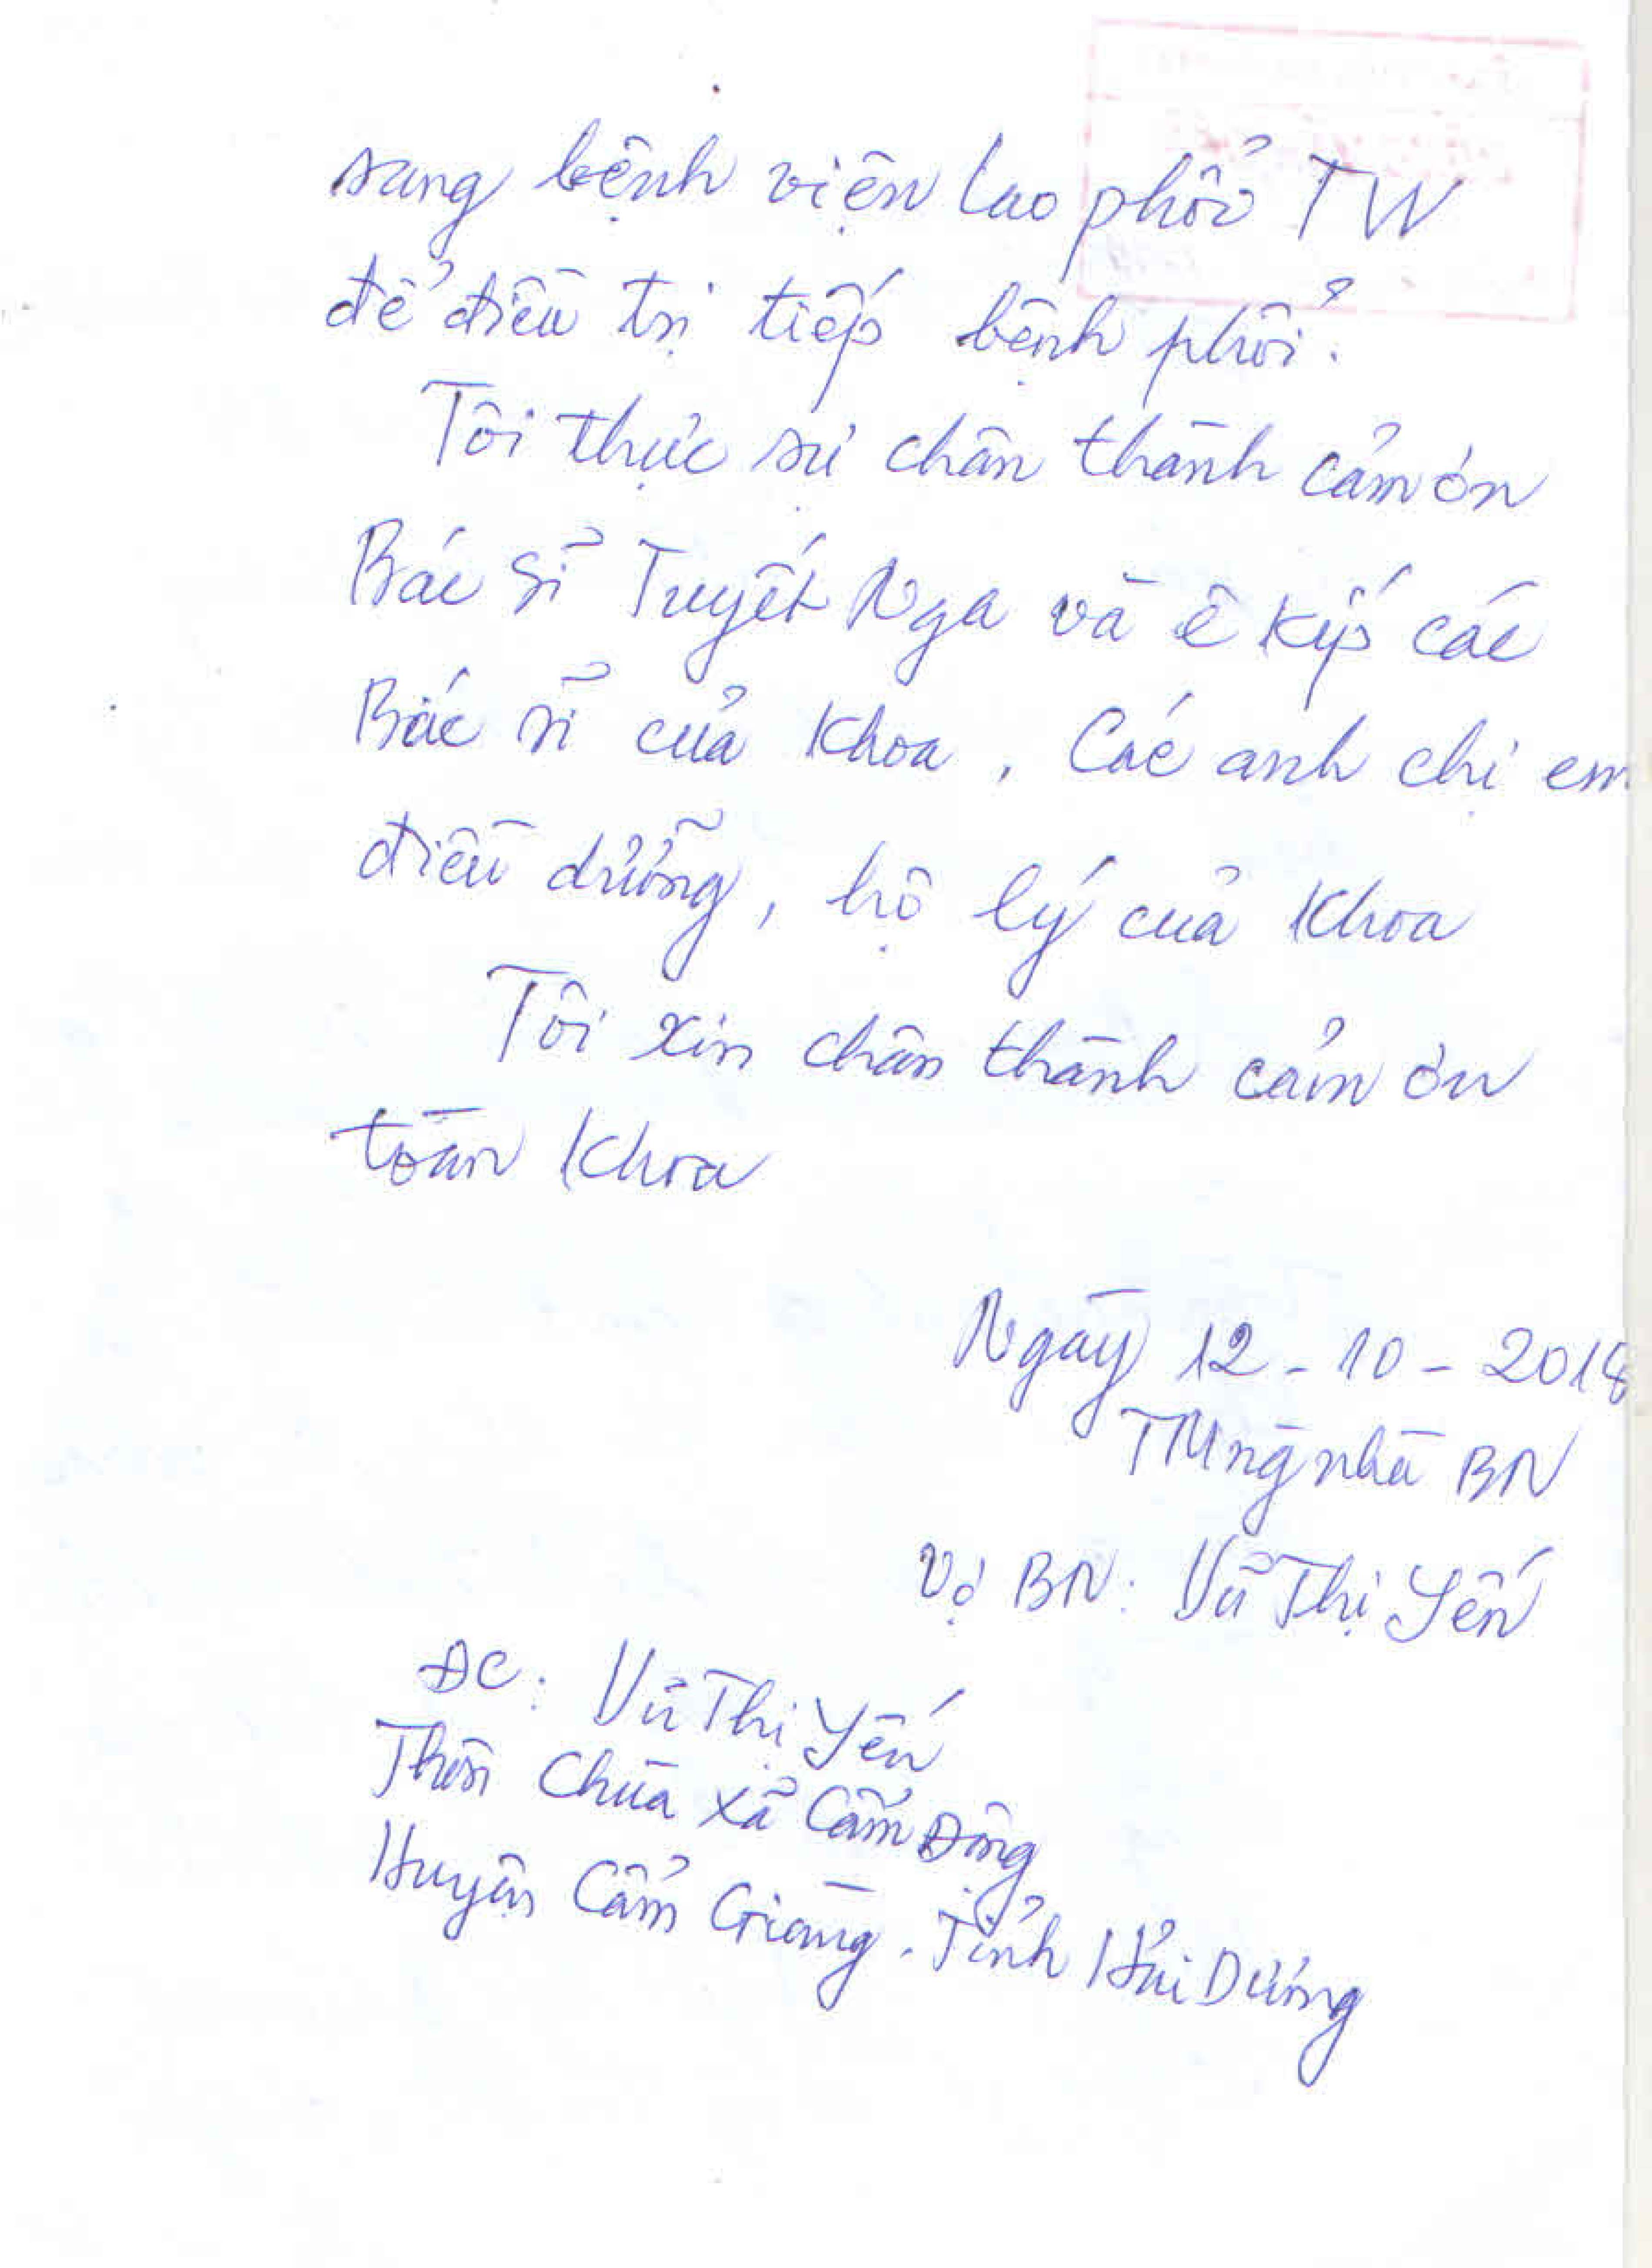 sang bệnh viện lao phổi TW
để điều trị tiếp bệnh phổi.
Tôi thực sự chân thành cảm ơn
Bác sĩ Tuyết Nga và ê kíp các
Bác sĩ của khoa, Các anh chị em
điều dưỡng, hộ lý của khoa
Tôi xin chân thành cảm ơn
toàn khoa
Ngày 12-10-2018
TM ng nhà BN
Vợ BN: Vũ Thị Yến
ĐC: Vũ Thị Yến
Thôn Chùa xã Cẩm Đông
Huyện Cẩm Giàng. Tỉnh Hải Dương